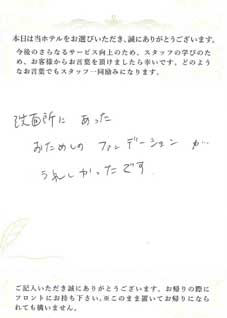 本日は当ホテルをお選びいただき、誠にありがとうございます。
今後のさらなるサービス向上のため、スタッフの学びのた
め、お客様からお言葉を頂けましたら幸いです、どのよう
なお言葉でもスタッフ一同励みになります。
洗面所に あった
おためしの ファンデーション が…
うれしかったです
ご記入いただき誠にありがとうございます。お帰りの際に
フロントにお持ち下さい。※このまま置いてお帰りになら
れても構いません。